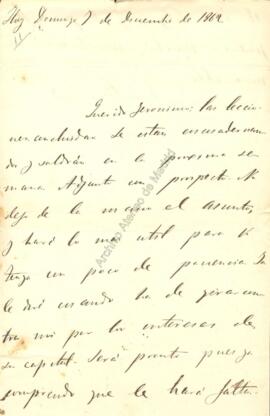 Hoy Domingo 7 de Diciembre de 1862
Querido Jeronimo: las leccio
nes anchidas se estan encuadernan
do y saldrán en la proxima se
mana Adjunto un prospecto. No
dejo de la mano el asunto,
y haré lo mas util para V.
tenga un poco de paciencia Ya
le diré cuando ha de girar con
tra mi por los intereses de
su capital. Será pronto pues ya
comprendo que le hará falta.
Archivo Ateneo de Madrid